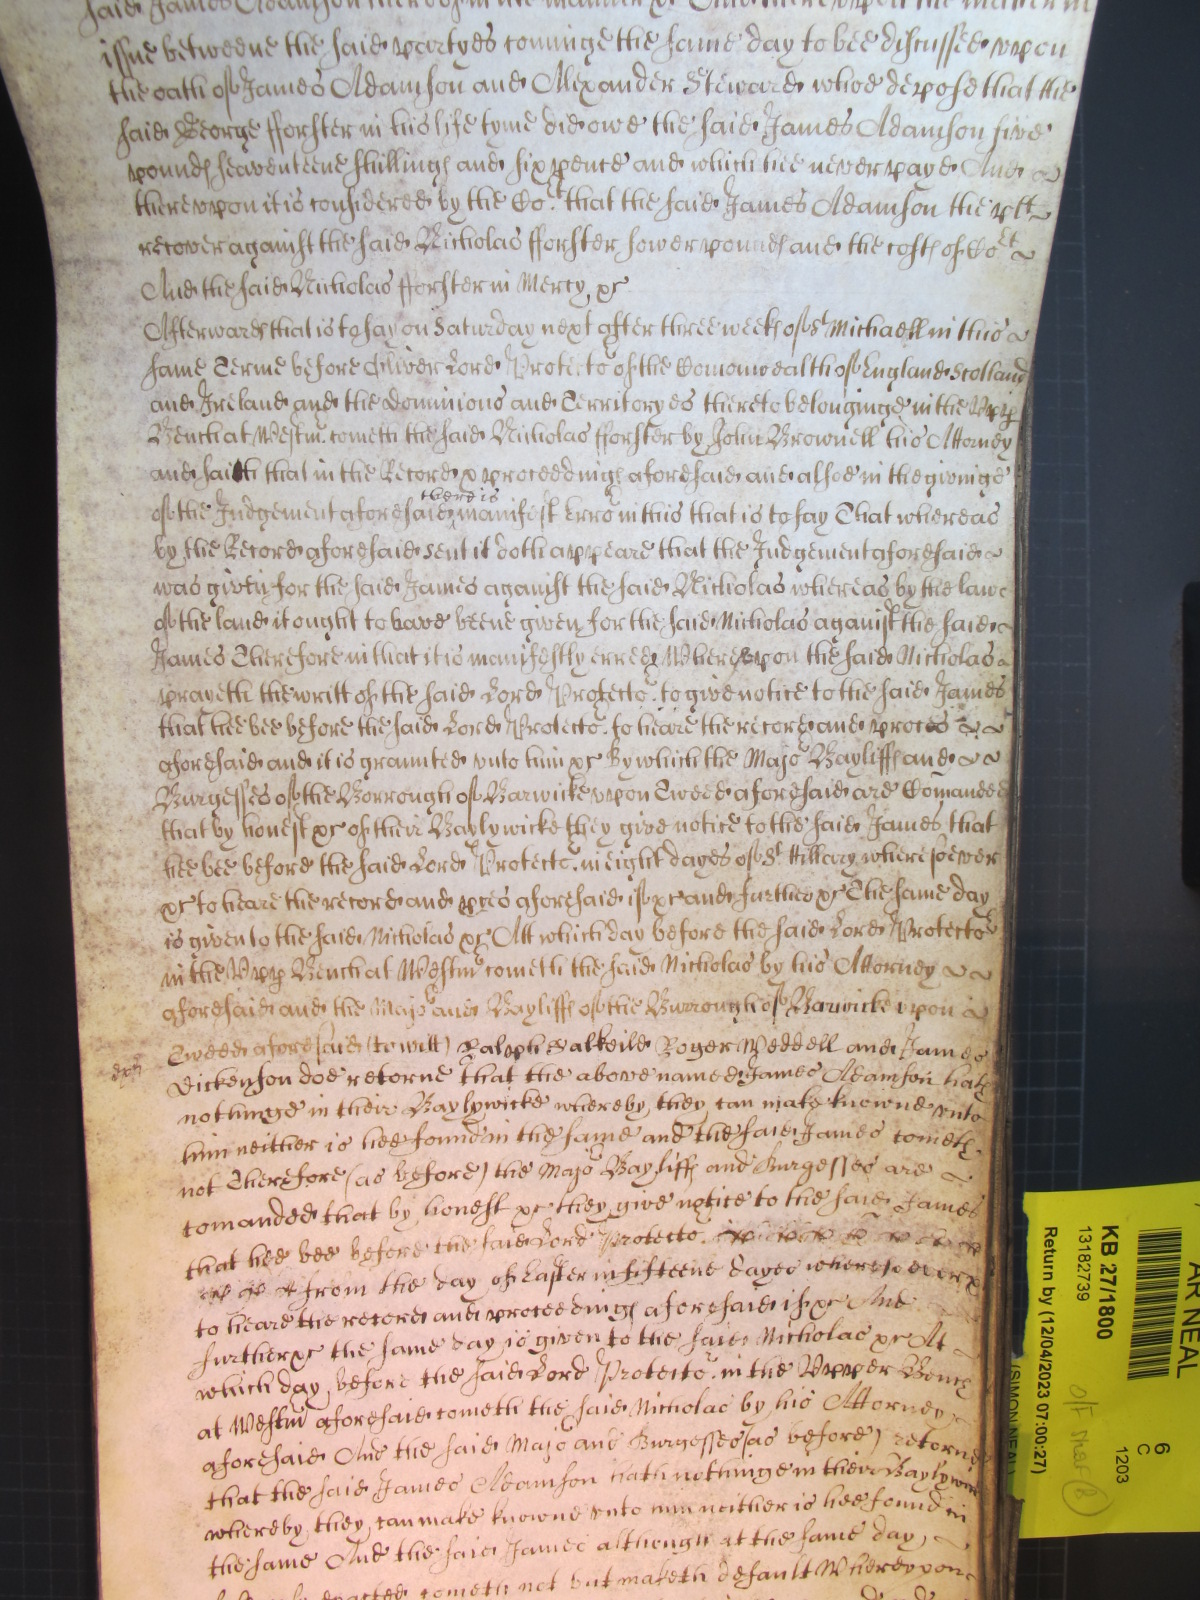 said James Adamson
issue betweene the said partyes cominge the same day to bee discussed uppon
the oath of James Adamson and Alexander Steward whoe depose that the
said George fforster in his life tyme did owe the said James Adamson five
pounds seaventeene shillings and six pence and which hee never payd And
thereuppon it is considered by the Cort that the said James Adamson the plt
recover against the said Nicholas fforster fower pounds and the costs of Cort
And the said Nicholas fforster in Mercy xc
Afterwards that is to say on Saturday next after three weeks of St Michaell in this
same Terme before Oliver Lord Protector of the Comonwealth of England Scotland
and Ireland and the Dominions and Territoryes thereto belonginge in the Upp
Bench at Westmr cometh the said Nicholas fforster by John Brownell his Attorney
and saith that in the Record & proceedings aforesaid and alsoe in the givinge
of the Judgement aforesaid there is manifest Error in this that is to say That whereas
by the Record aforesaid sent it doth appeare that the Judgement aforesaid
was given for the said James against the said Nicholas whereas by the lawe
of the land it ought to have beene given for the said Nicholas against the said
James Therefore in that it is manifestly erred Whereuppon the said Nicholas
prayeth the writt of the said Lord Protector to give notice to the said James
that hee bee before the said Lord Protector to heare the record and proces
aforesaid and it is graunted unto him xc By which the Major Bayliffs and
Burgesses of the Borrough of Barwicke upon Tweed aforesaid are Comanded
that by honest xc of their Baylywicke they give notice to the said James that
hee bee before the said Lord Protector in eight dayes of St Hillary wheresoever
xc to heare the record and pces aforesaid if xc and further xc The same day
is given to the said Nicholas xc Att which day before the said Lord Protector
in the Upp Bench at Westmr cometh the said Nicholas by his Attorney
aforesaid and the Major and Bayliffs of the Burrough of Barwicke upon
Tweed aforesaid (to witt) Ralph Salkeild Roger Weddell and James
Dickenson doe retorne that the above named James Adamson hath
nothinge in their Baylywicke whereby they can make knowne unto
him neither is hee found in the same and the said James cometh
not Therefore (as before) the Major Bayliffs and Burgesses are
comanded that by honest xc they give notice to the said James
that hee bee before the said Lord Protector
from the day of Easter in fifteene dayes wheresoever x
to heare the record and proceedings aforesaid if xc And
further xc the same day is given to the said Nicholas xc At
which day before the said Lord Protector in the Upper Bench
at Westmr aforesaid cometh the said Nicholas by his Attorney
aforesaid And the said Major and Burgesses (as before) retorne
that the said James Adamson hath nothinge in their Baylywic
whereby they can make knowne unto him neither is hee found in
the same And the said James although at the same day
cometh not but maketh default Whereupon
AR NEAL
KB 27/1800
13182739
Return by (12/04/2023 07:00:27)
(SIMON NEAL)
6
C
1203